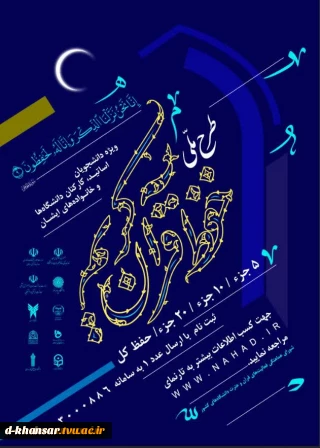 إِنَّا نَحْنُ نَزَّلْنَا الذِّكْرَ وَإِنَّا لَهُ لَحَافِظُونَ
طرح ملی
حفظ قرآن کریم
ویژه دانشجویان
اساتید، کارکنان دانشگاه‌ها
و خانواده‌های ایشان
۵ جزء / ۱۰ جزء / ۲۰ جزء / حفظ کل
ثبت نام با ارسال عدد ۱ به سامانه ۳۰۰۰۸۸۶
جهت کسب اطلاعات بیشتر به تارنمای
WWW.NAHAD.IR
مراجعه نمایید
d-khansar.tvu.ac.ir